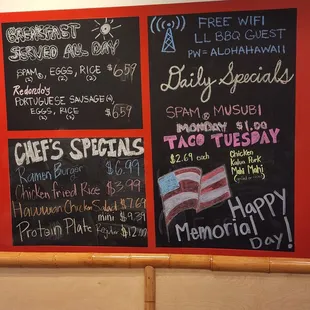 BREAKFAST
SERVED ALL DAY
SPAM®, EGGS, RICE $6.59
(2) (2)
Redondo's
PORTUGUESE SAUSAGE(4)
EGGS, RICE $6.59
(2) (2)
CHEF'S SPECIALS
Ramen Burger $6.99
Chicken Fried Rice $3.99
Hawaiian Chicken Salad $7.69
mini $9.39
Protein Plate Regular
FREE WIFI
LL BBQ GUEST
PW = ALOHAHAWAII
Daily Specials
SPAM® MUSUBI
MONDAY $1.00
TACO TUESDAY
$2.69 each
Chicken
Kalua Pork
Mahi Mahi
Happy
Memorial
Day!